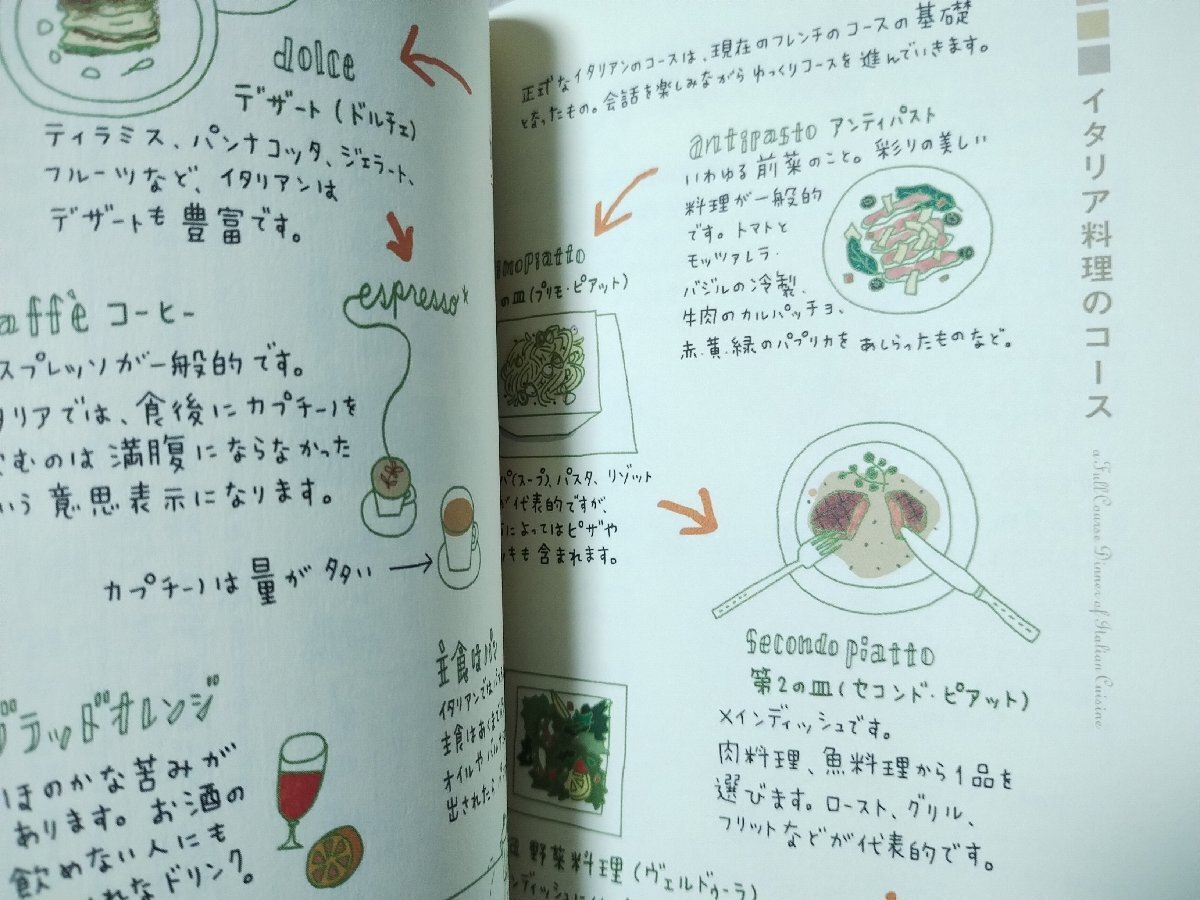 dolce
デザート(ドルチェ)
ティラミス、パンナコッタ、ジェラート、
フルーツなど、イタリアンは
デザートも豊富です。
affè コーヒー
スプレッソが一般的です。
タリアでは、食後にカプチーノを
むのは満腹にならなかった
いう意思表示になります。
espresso*
カプチーノは量が多い →
ブラッドオレンジ
ほのかな苦みが
あります。お酒の
飲めない人にも
れなドリンク。
主食はパン
イタリアンでは
主食はあくまで
オイルやバル
出されたら
正式なイタリアンのコースは、現在のフレンチのコースの基礎
となったもの。会話を楽しみながらゆっくりコースを進んでいきます。
antipasto アンティパスト
いわゆる前菜のこと。彩りの美しい
料理が一般的
です。トマトと
モッツァレラ・
バジルの冷製、
牛肉のカルパッチョ、
赤・黄・緑のパプリカをあしらったものなど。
imo piatto
の皿(プリモ・ピアット)
パ(スープ)、パスタ、リゾット
が代表的ですが、
によってはピザや
ッキも含まれます。
secondo piatto
第2の皿(セコンド・ピアット)
メインディッシュです。
肉料理、魚料理から1品を
選びます。ロースト、グリル、
フリットなどが代表的です。
野菜料理(ヴェルドゥーラ)
ンディッシュに
イタリア料理のコース
a Full Course Dinner of Italian Cuisine